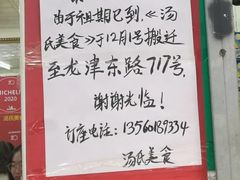 由于租期已到,《汤
氏美食》于12月1号搬迁
至龙津东路717号,
谢谢光临!
订座电话: 13560189334
汤氏美食
MICHELIN
2020